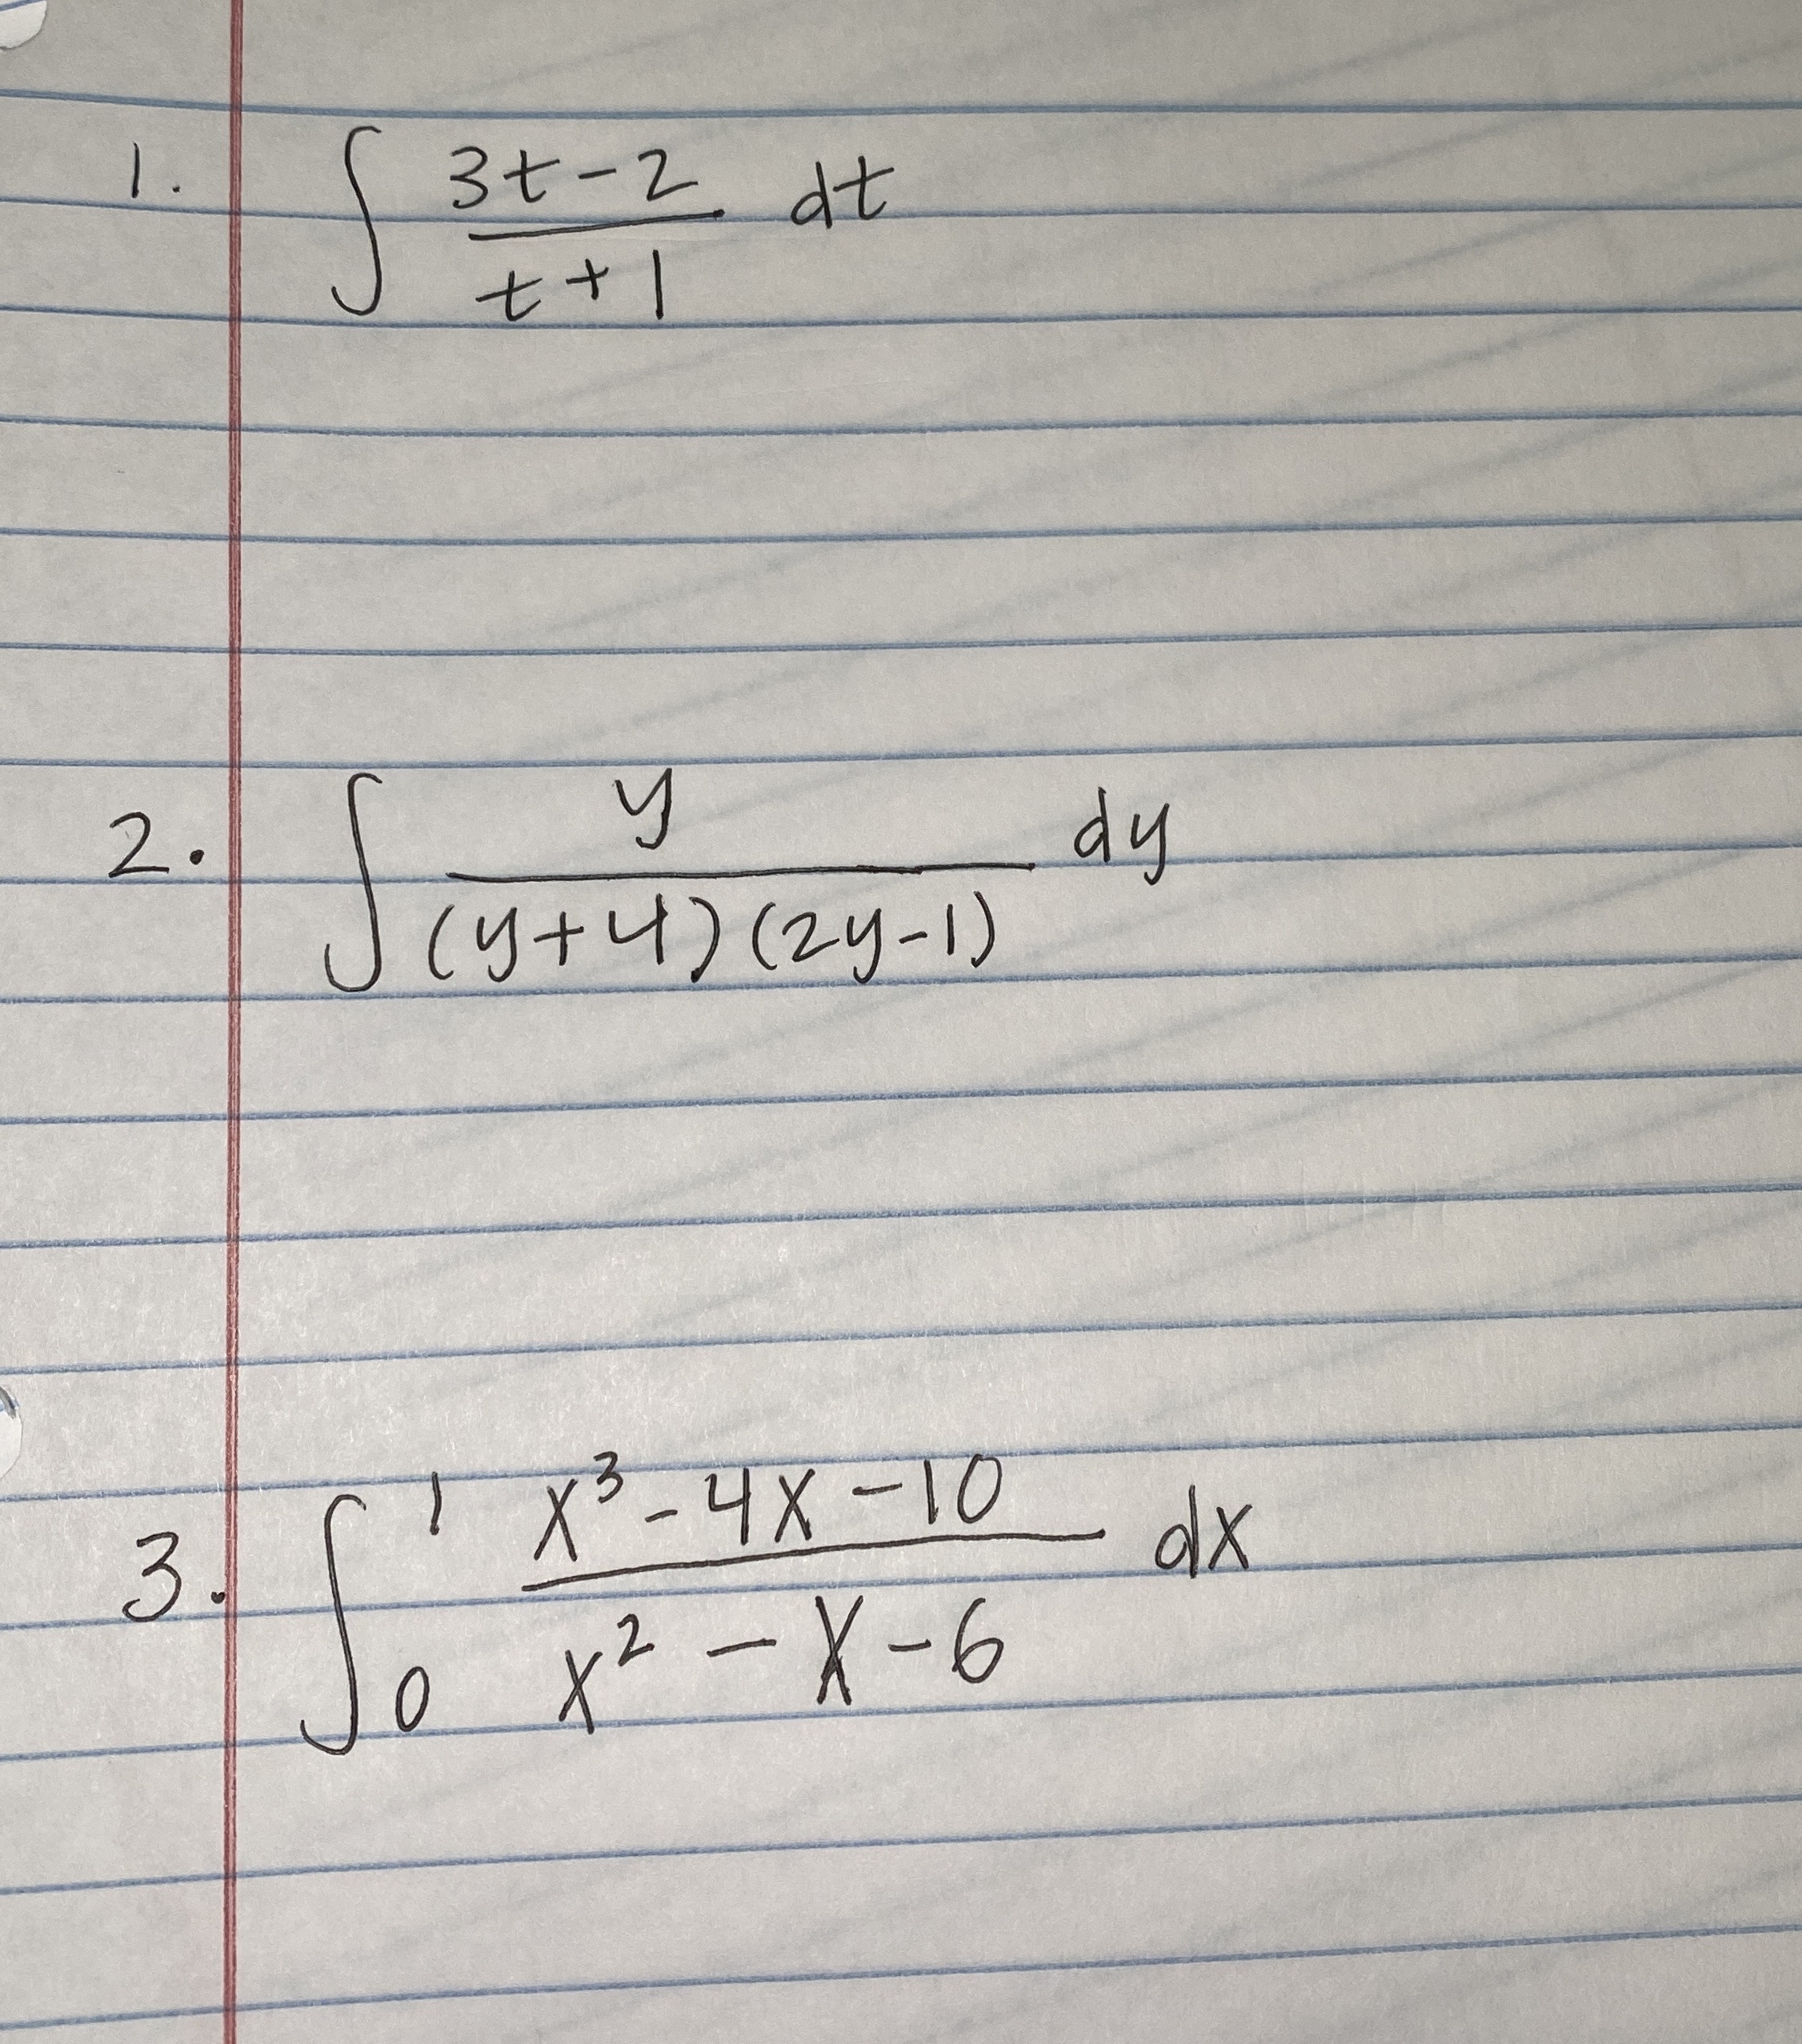 1. ∫ (3t-2)/(t+1) dt
2. ∫ y/((y+4)(2y-1)) dy
3. ∫₀¹ (x³-4x-10)/(x²-x-6) dx